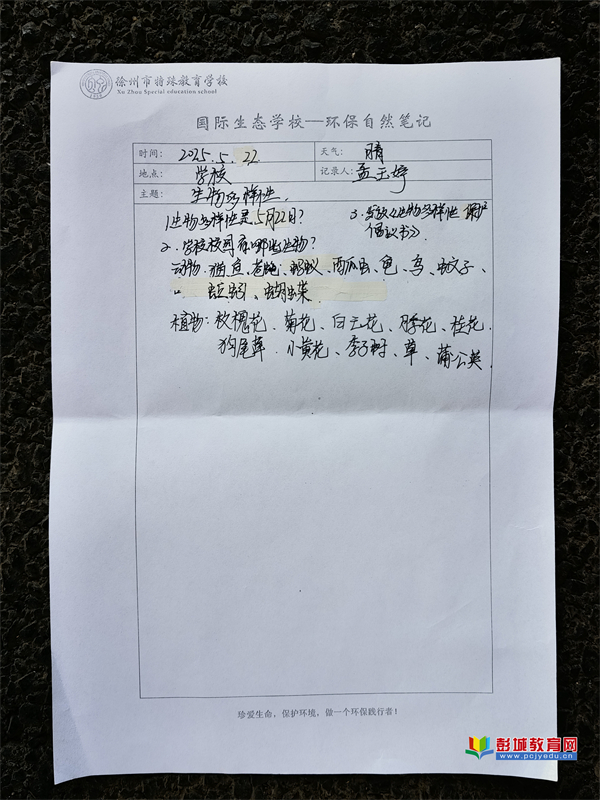 徐州市特殊教育学校
Xu Zhou Special education school
国际生态学校—环保自然笔记
时间： 2025.5.22. 天气： 晴
地点： 学校 记录人： 孟玉婷
主题： 生物多样性.
1.生物多样性是5月22日? 3.绿放《生物多样性 保护
倡议书》
2.学校校园有哪些生物?
动物. 猫. 鱼. 老鼠. 蚂蚁、西瓜虫、龟、鸟、蚊子、
蚯蚓、蝴蝶
植物：玫瑰花、菊花、白云花、月季花、桂花、
狗尾草. 小黄花、李子树、草、蒲公英.
珍爱生命，保护环境，做一个环保践行者！
彭城教育网
www.pcjyedu.cn